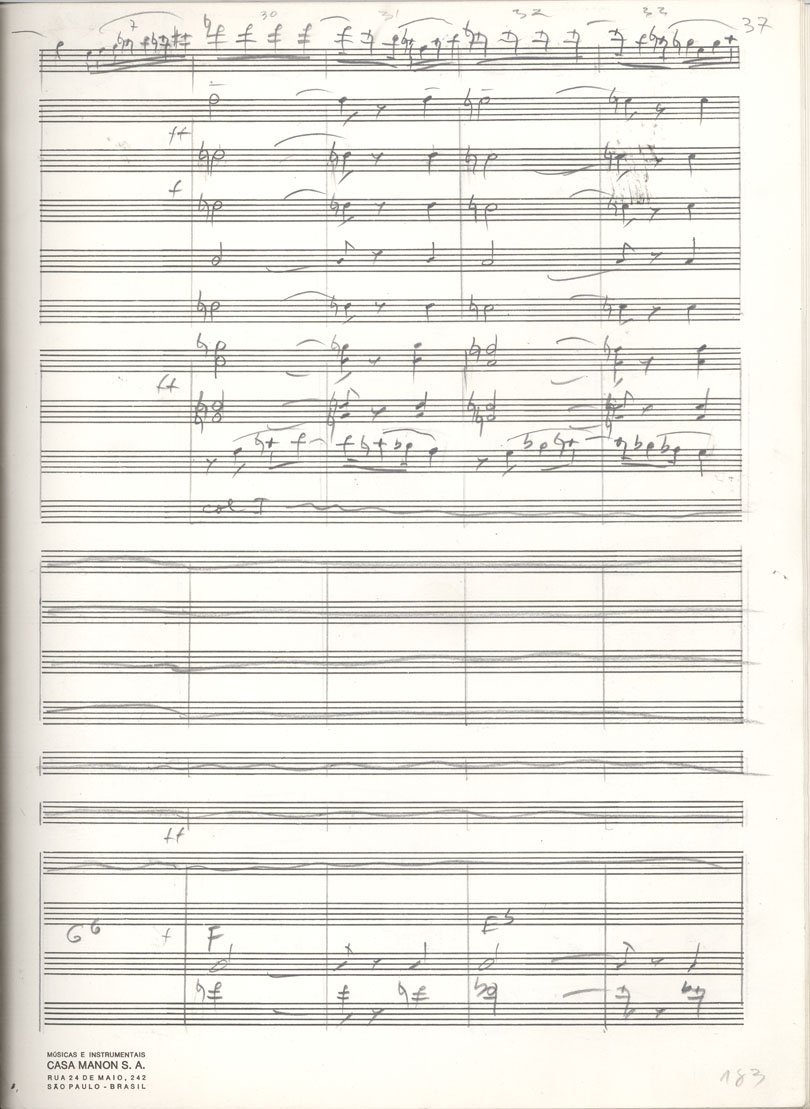 7 30 31 32 33 37
ff
f
ff
col I
ff
G6 F E5
MÚSICAS E INSTRUMENTAIS
CASA MANON S. A.
RUA 24 DE MAIO, 242
SÃO PAULO - BRASIL
183